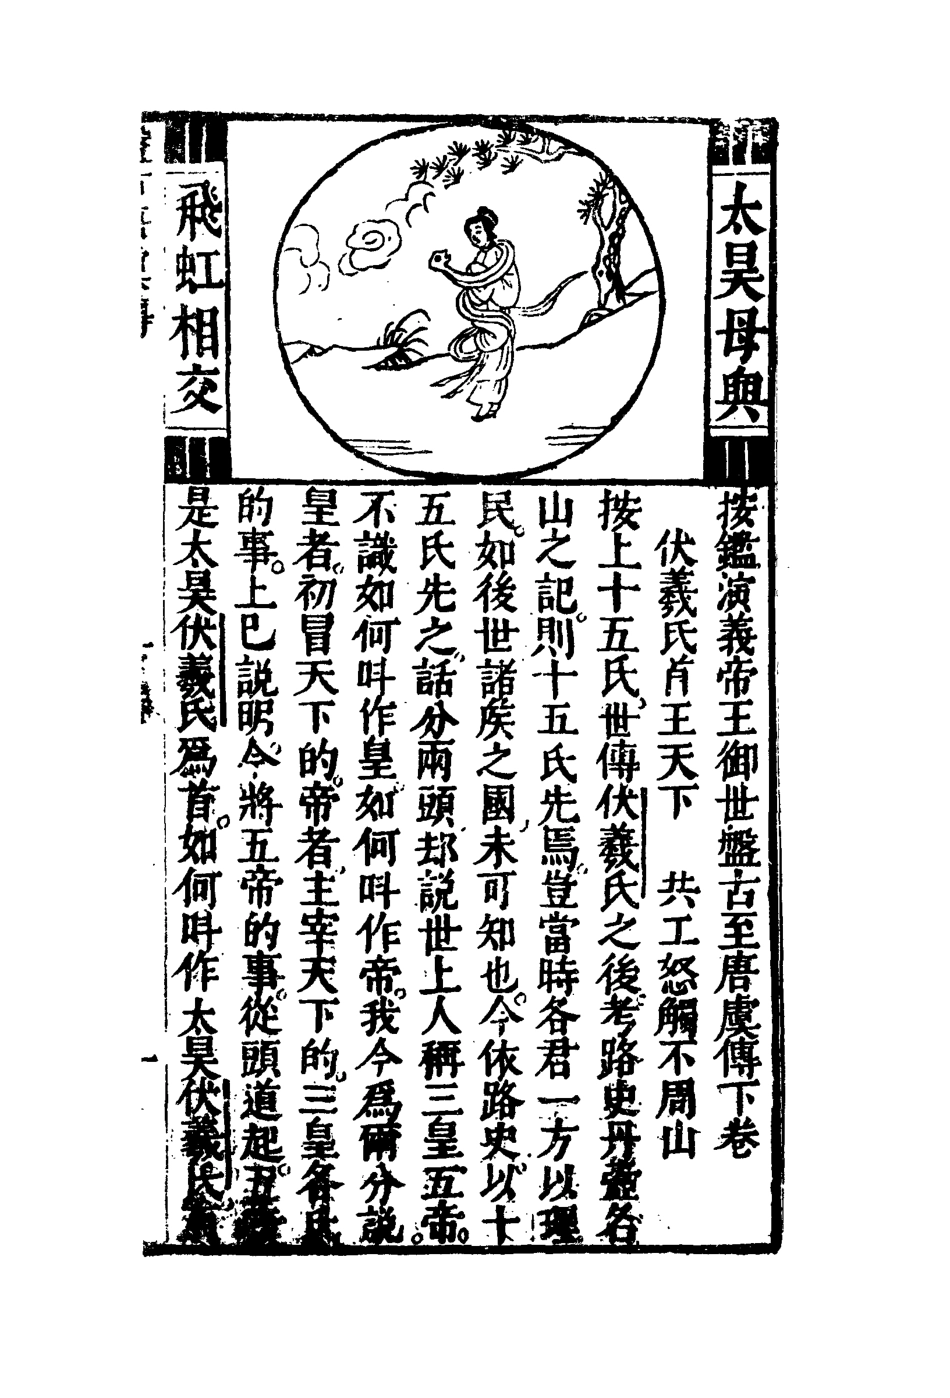 太昊母與
飛虹相交
按鑑演義帝王御世盤古至唐虞傳下卷
伏羲氏肖王天下　共工怒觸不周山
按上十五氏世傳伏羲氏之後考路史丹壺各
山之記則十五氏先焉豈當時各君一方以理
民如後世諸矦之國未可知也今依路史以十
五氏先之話分兩頭却說世上人稱三皇五帝
不識如何呌作皇如何呌作帝我今爲爾分說
皇者初冒天下的帝者主宰天下的三皇各氏
的事上巳說明今將五帝的事從頭道起五
是太昊伏羲氏爲首如何呌作太昊伏羲氏